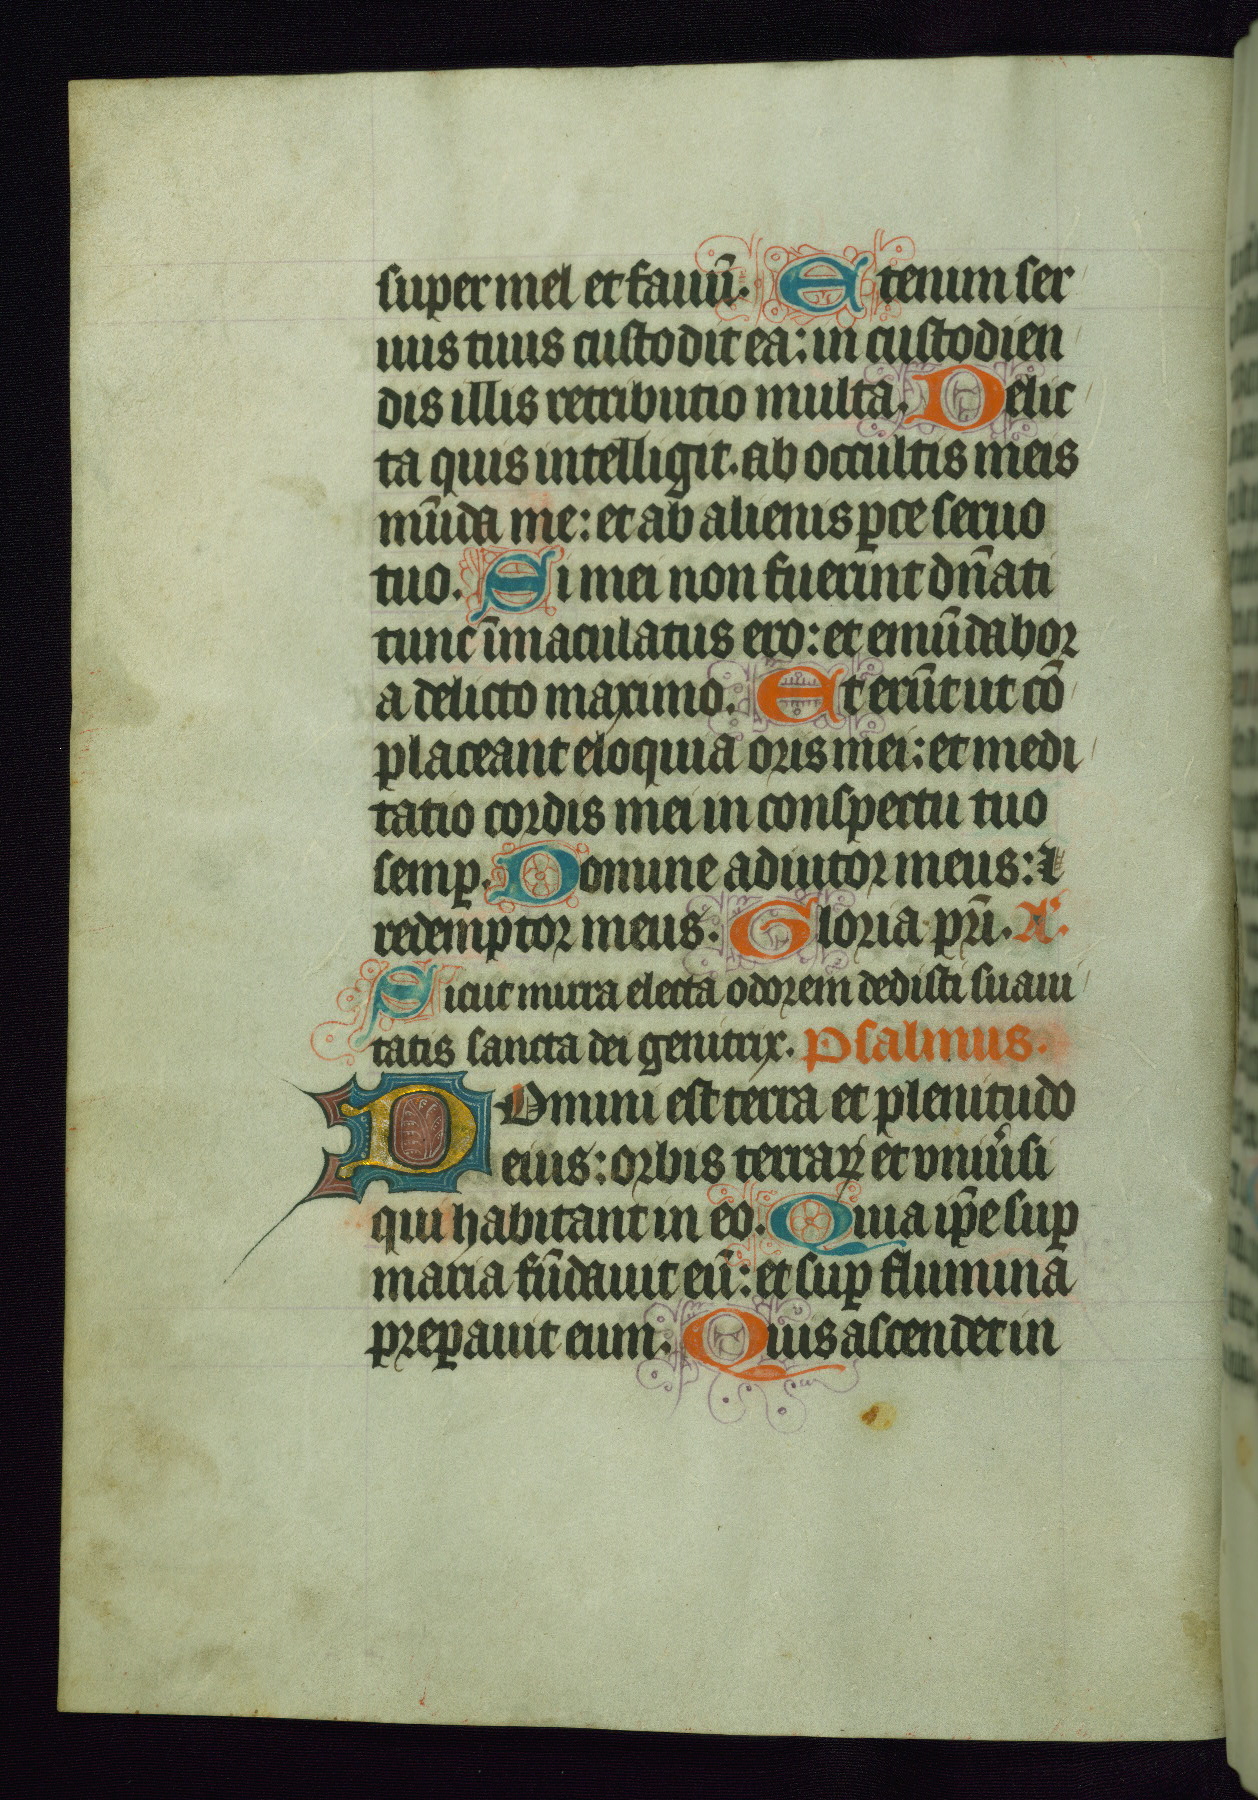 super mel et fauū. Etenum ser
uus tuus custodit ea: in custodien
dis illis retributio multa. Delic
ta quis intelligit. ab occultis meis
mūda me: et ab alienis ꝑce seruo
tuo. Si mei non fuerint dn̄ati
tunc īmaculatus ero: et emūdabor
a delicto maximo. Et erūt ut cō
placeant eloquia oris mei: et medi
tatio cordis mei in conspectu tuo
semꝑ. Domine adiutor meus: ⁊
redemptor meus. Gloria pr̄i. A'.
Sicut mirra electa odorem dedisti suaui
tatis sancta dei genitrix. Psalmus.
DOmini est terra et plenitudo
eius: orbis terraꝝ et uniu͛si
qui habitant in eo. Quia ip̄e suꝑ
maria fūdauit eū: et suꝑ flumina
preꝑauit eum. Quis ascendet in